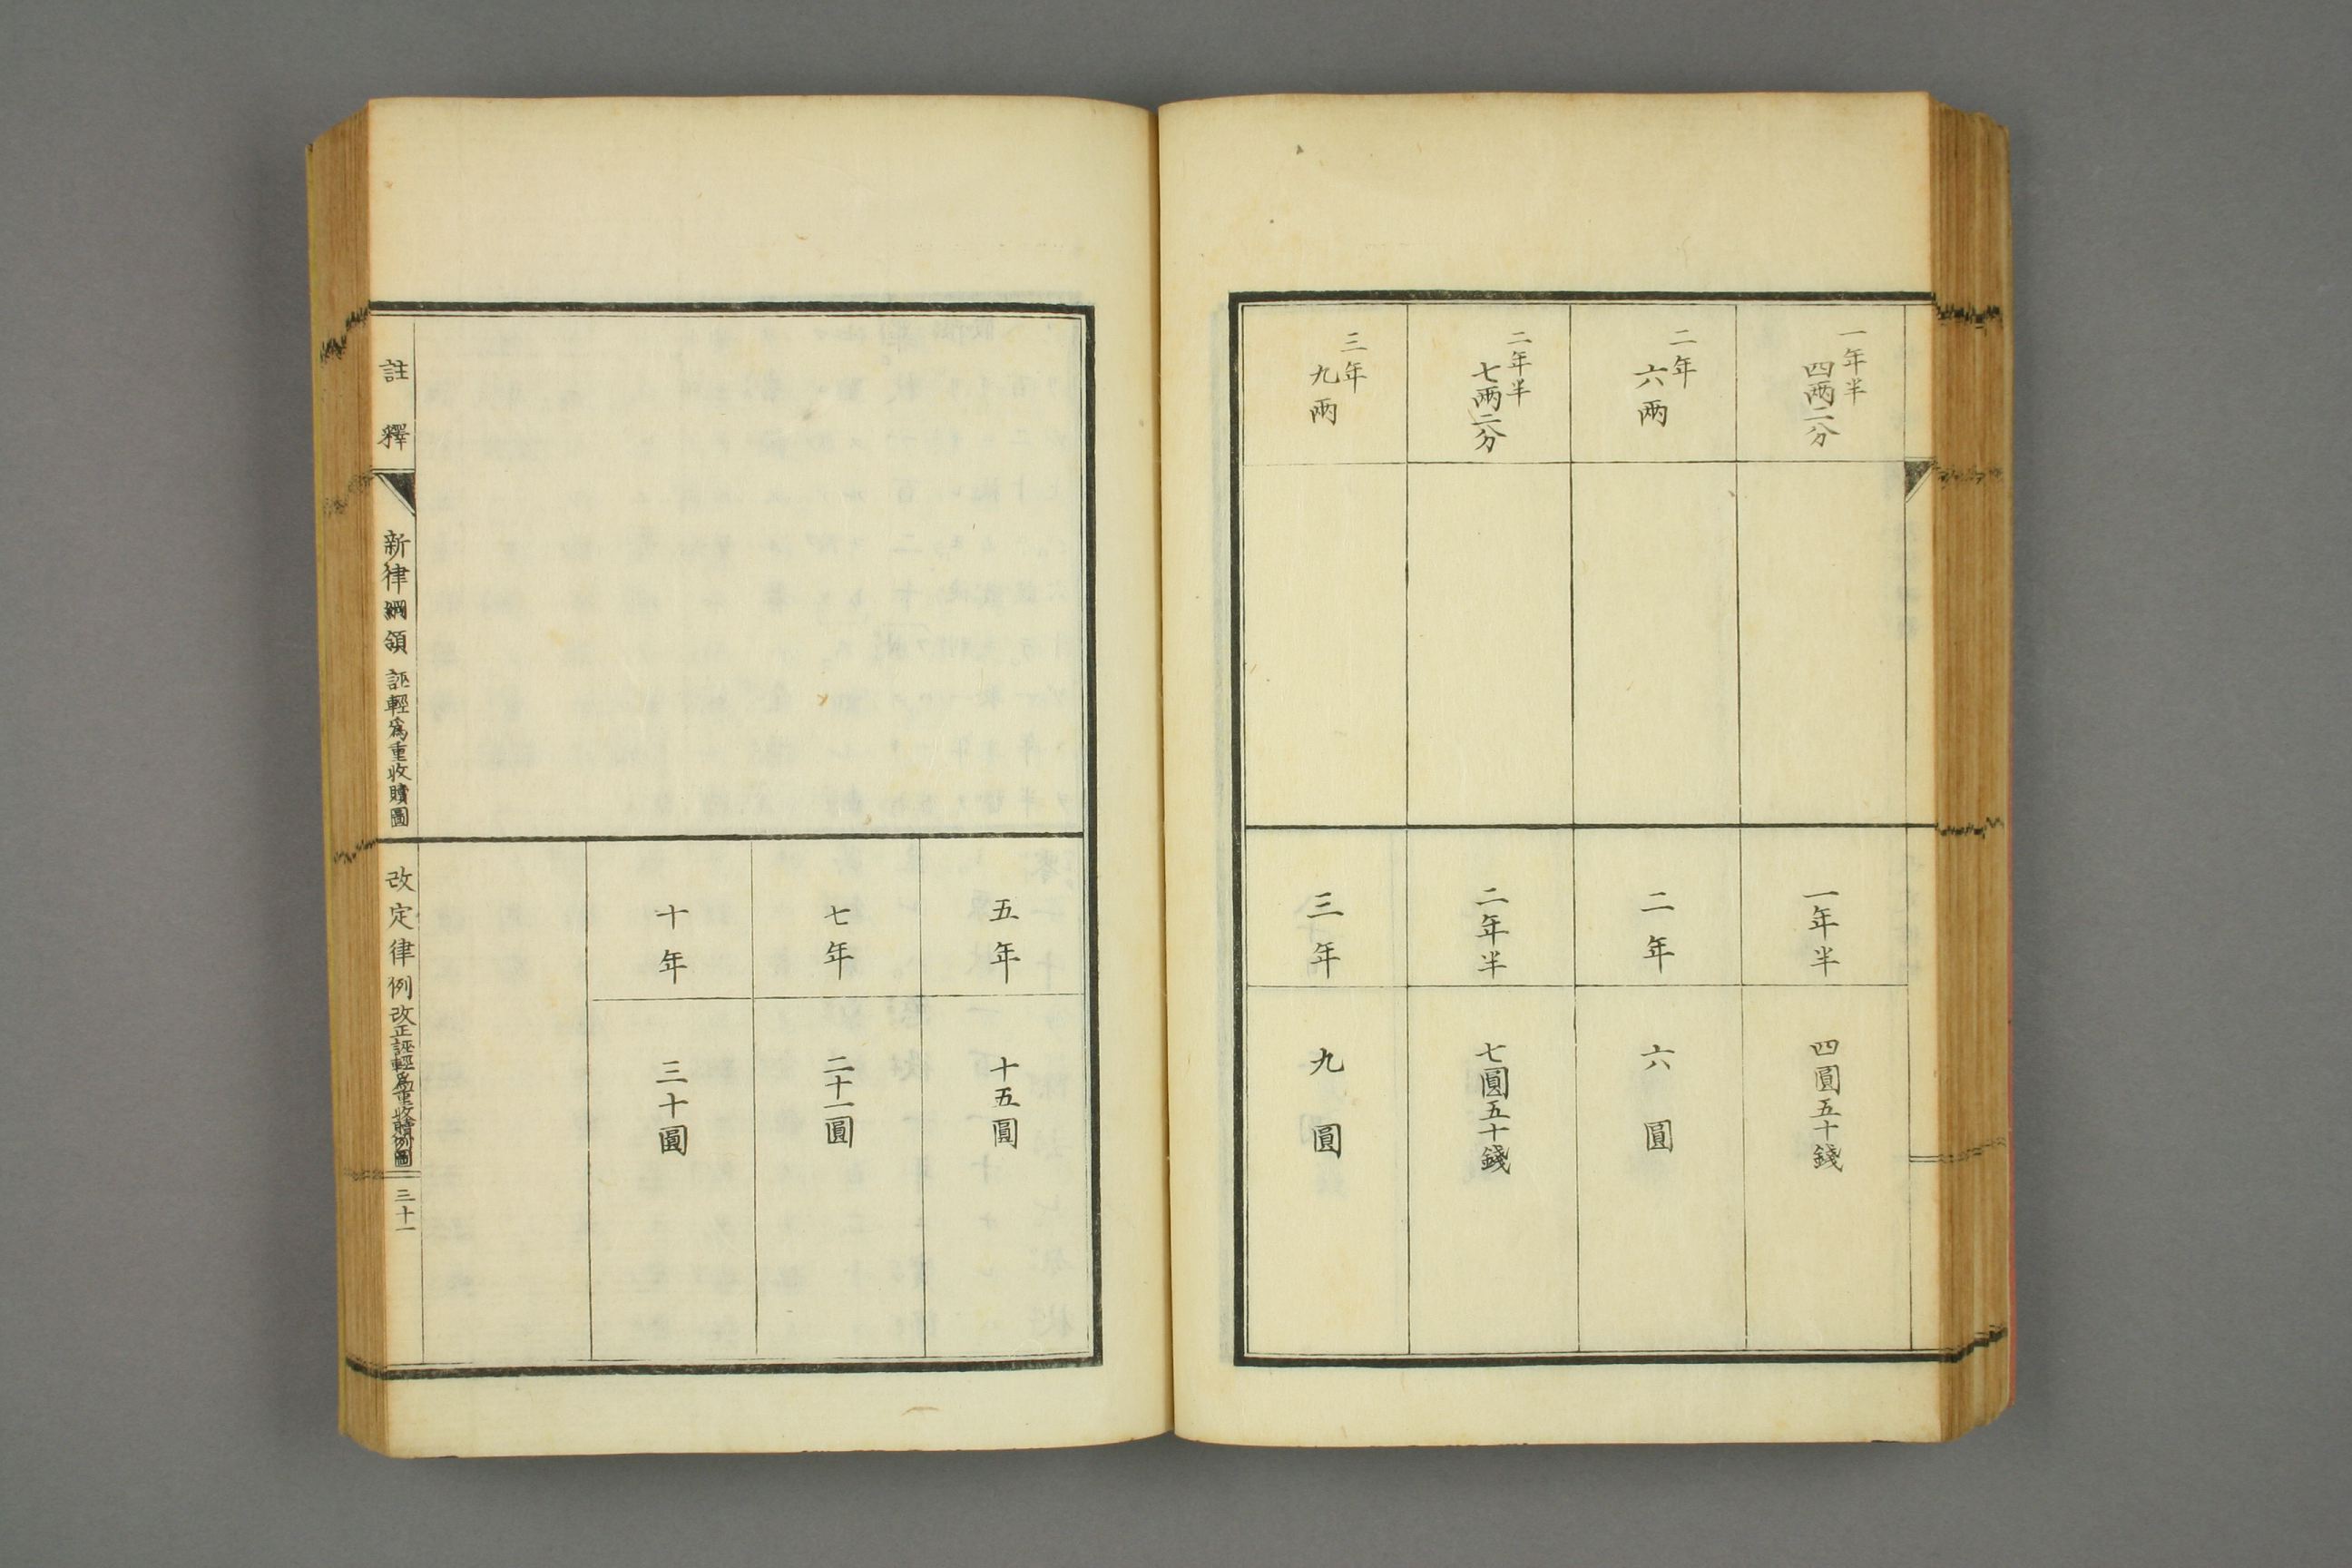 一年半
四兩二分
二年
六兩
二年半
七兩二分
三年
九兩
一年半
四圓五十錢
二年
六圓
二年半
七圓五十錢
三年
九圓
五年
十五圓
七年
二十一圓
十年
三十圓
註釋
新律綱領 誣輕爲重收贖圖
改定律例 改正誣輕爲重收贖例圖
三十一